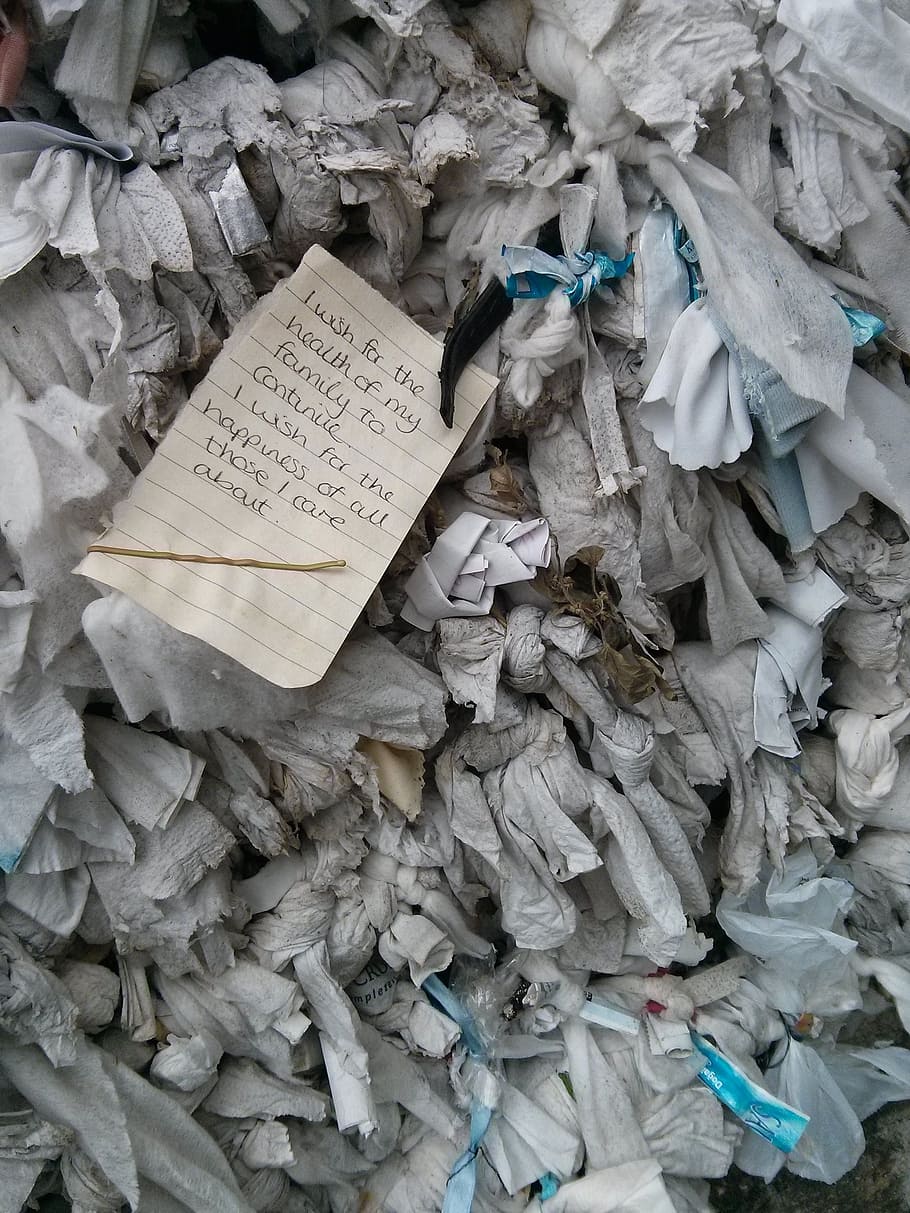 I wish for the
health of my
family to
continue.
I wish for the
happiness of all
those I care
about.
Doğal